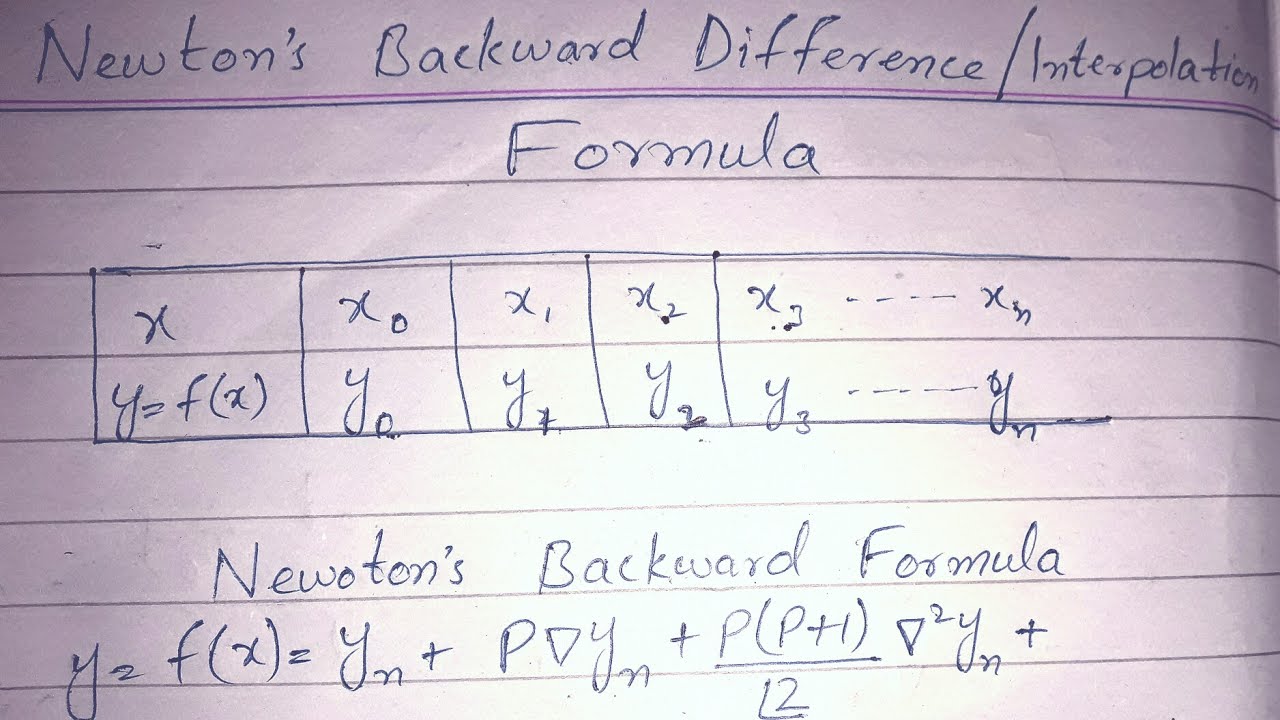 Newton's Backward Difference/Interpolation
Formula
x x₀ x₁ x₂ x₃ ----- xₙ
y=f(x) y₀ y₁ y₂ y₃ ----- yₙ
Newoton's Backward Formula
y= f(x)= yₙ + P∇yₙ + P(P+1)/⌊2 ∇²yₙ +